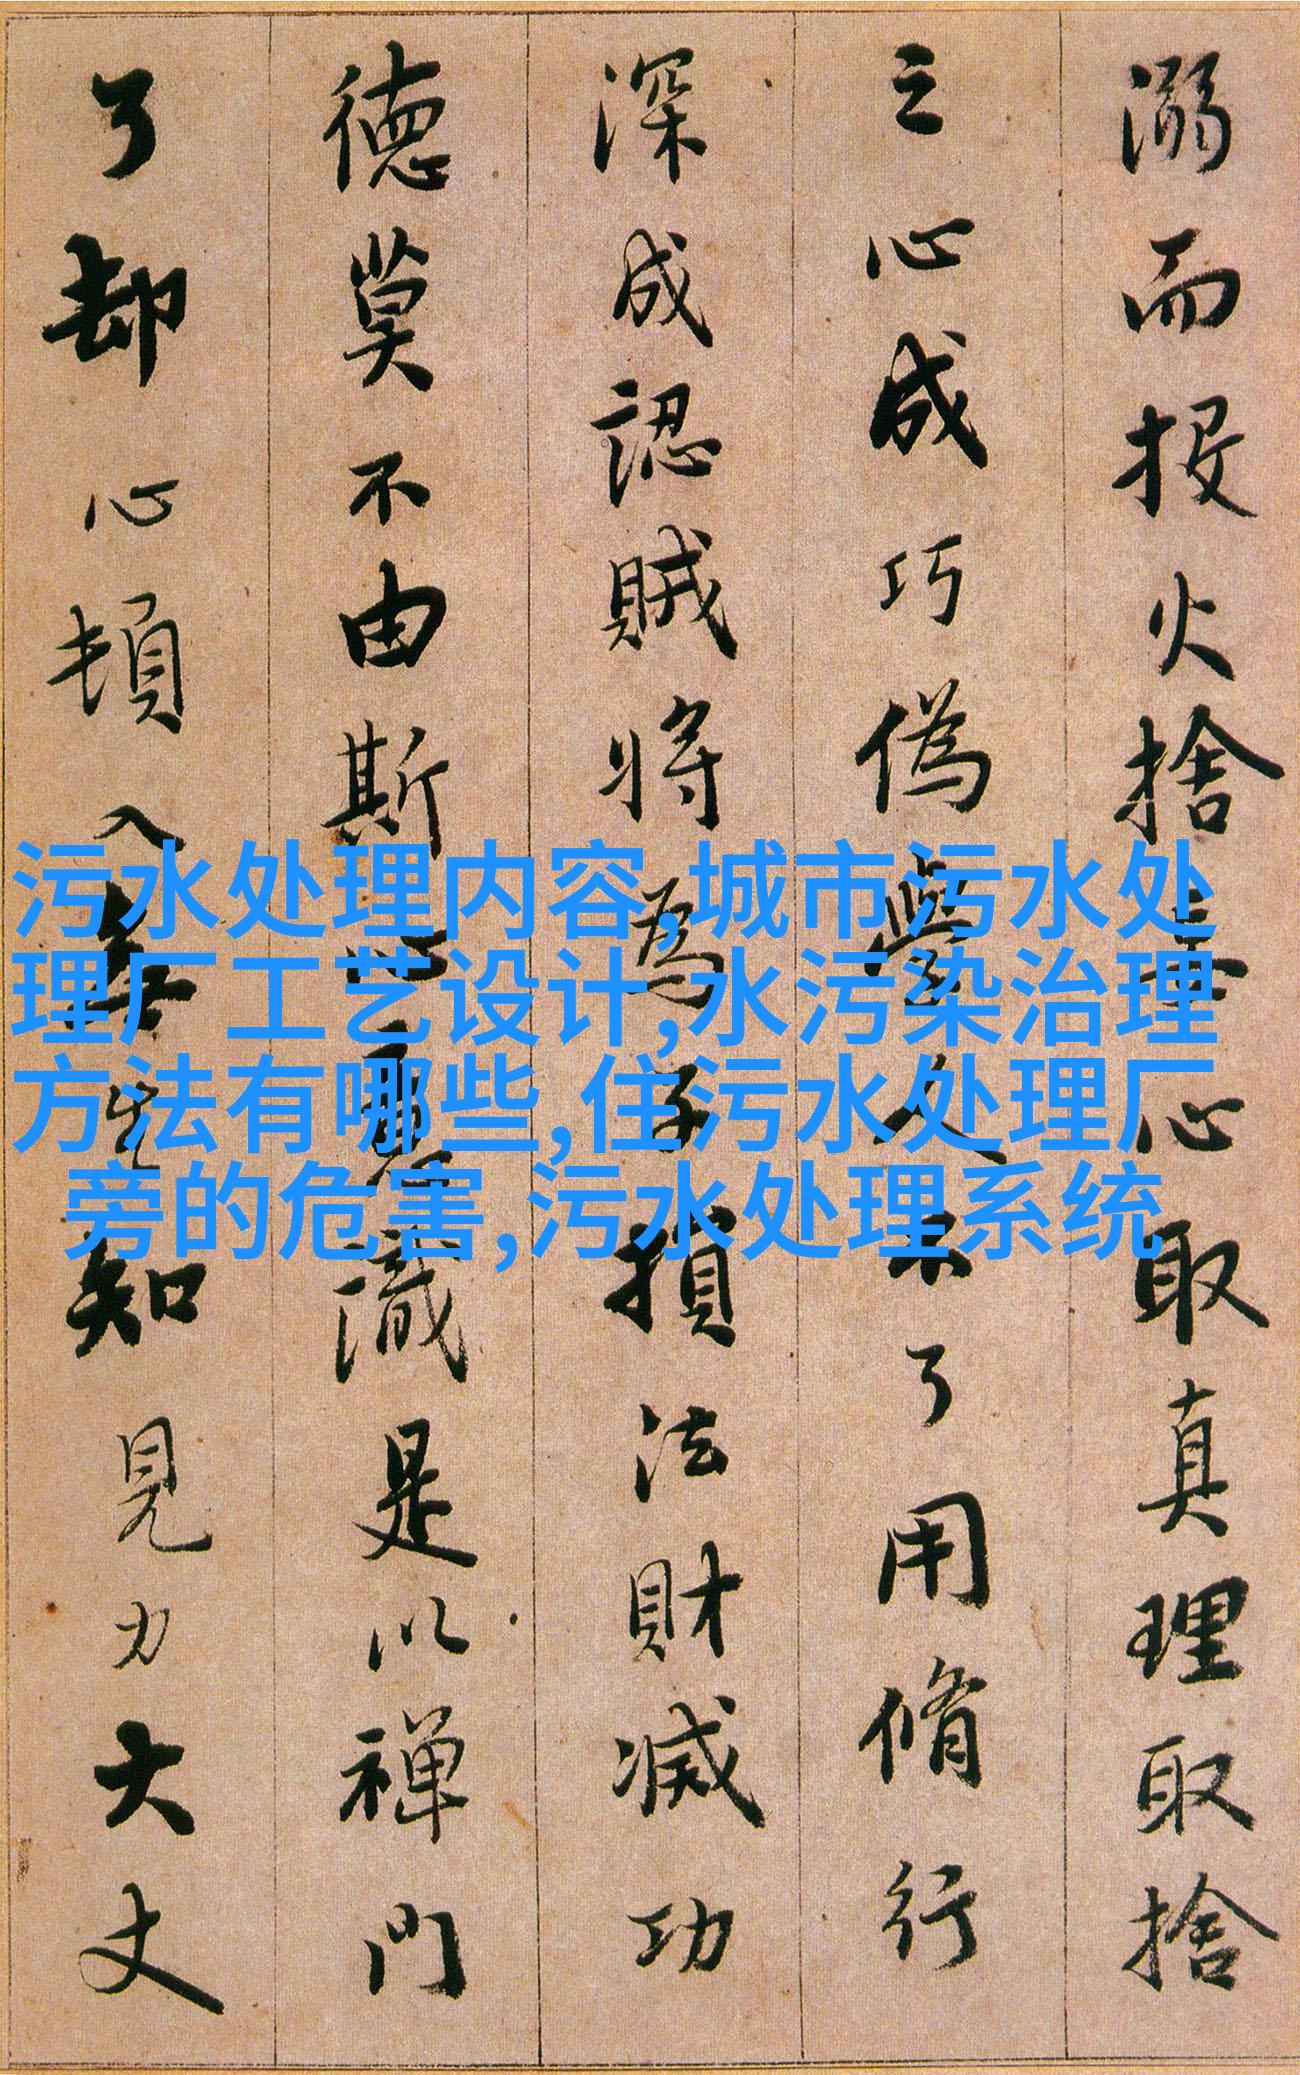 溺而投火捨妄心取真理取捨
之心成巧偽學人不了用脩行
深成認賊將為子損法財滅功
德莫不由斯心意識是以禪門
了却心頓入無生知見力大丈
污水处理内容,城市污水处
理厂工艺设计,水污染治理
方法有哪些,住污水处理厂
旁的危害,污水处理系统